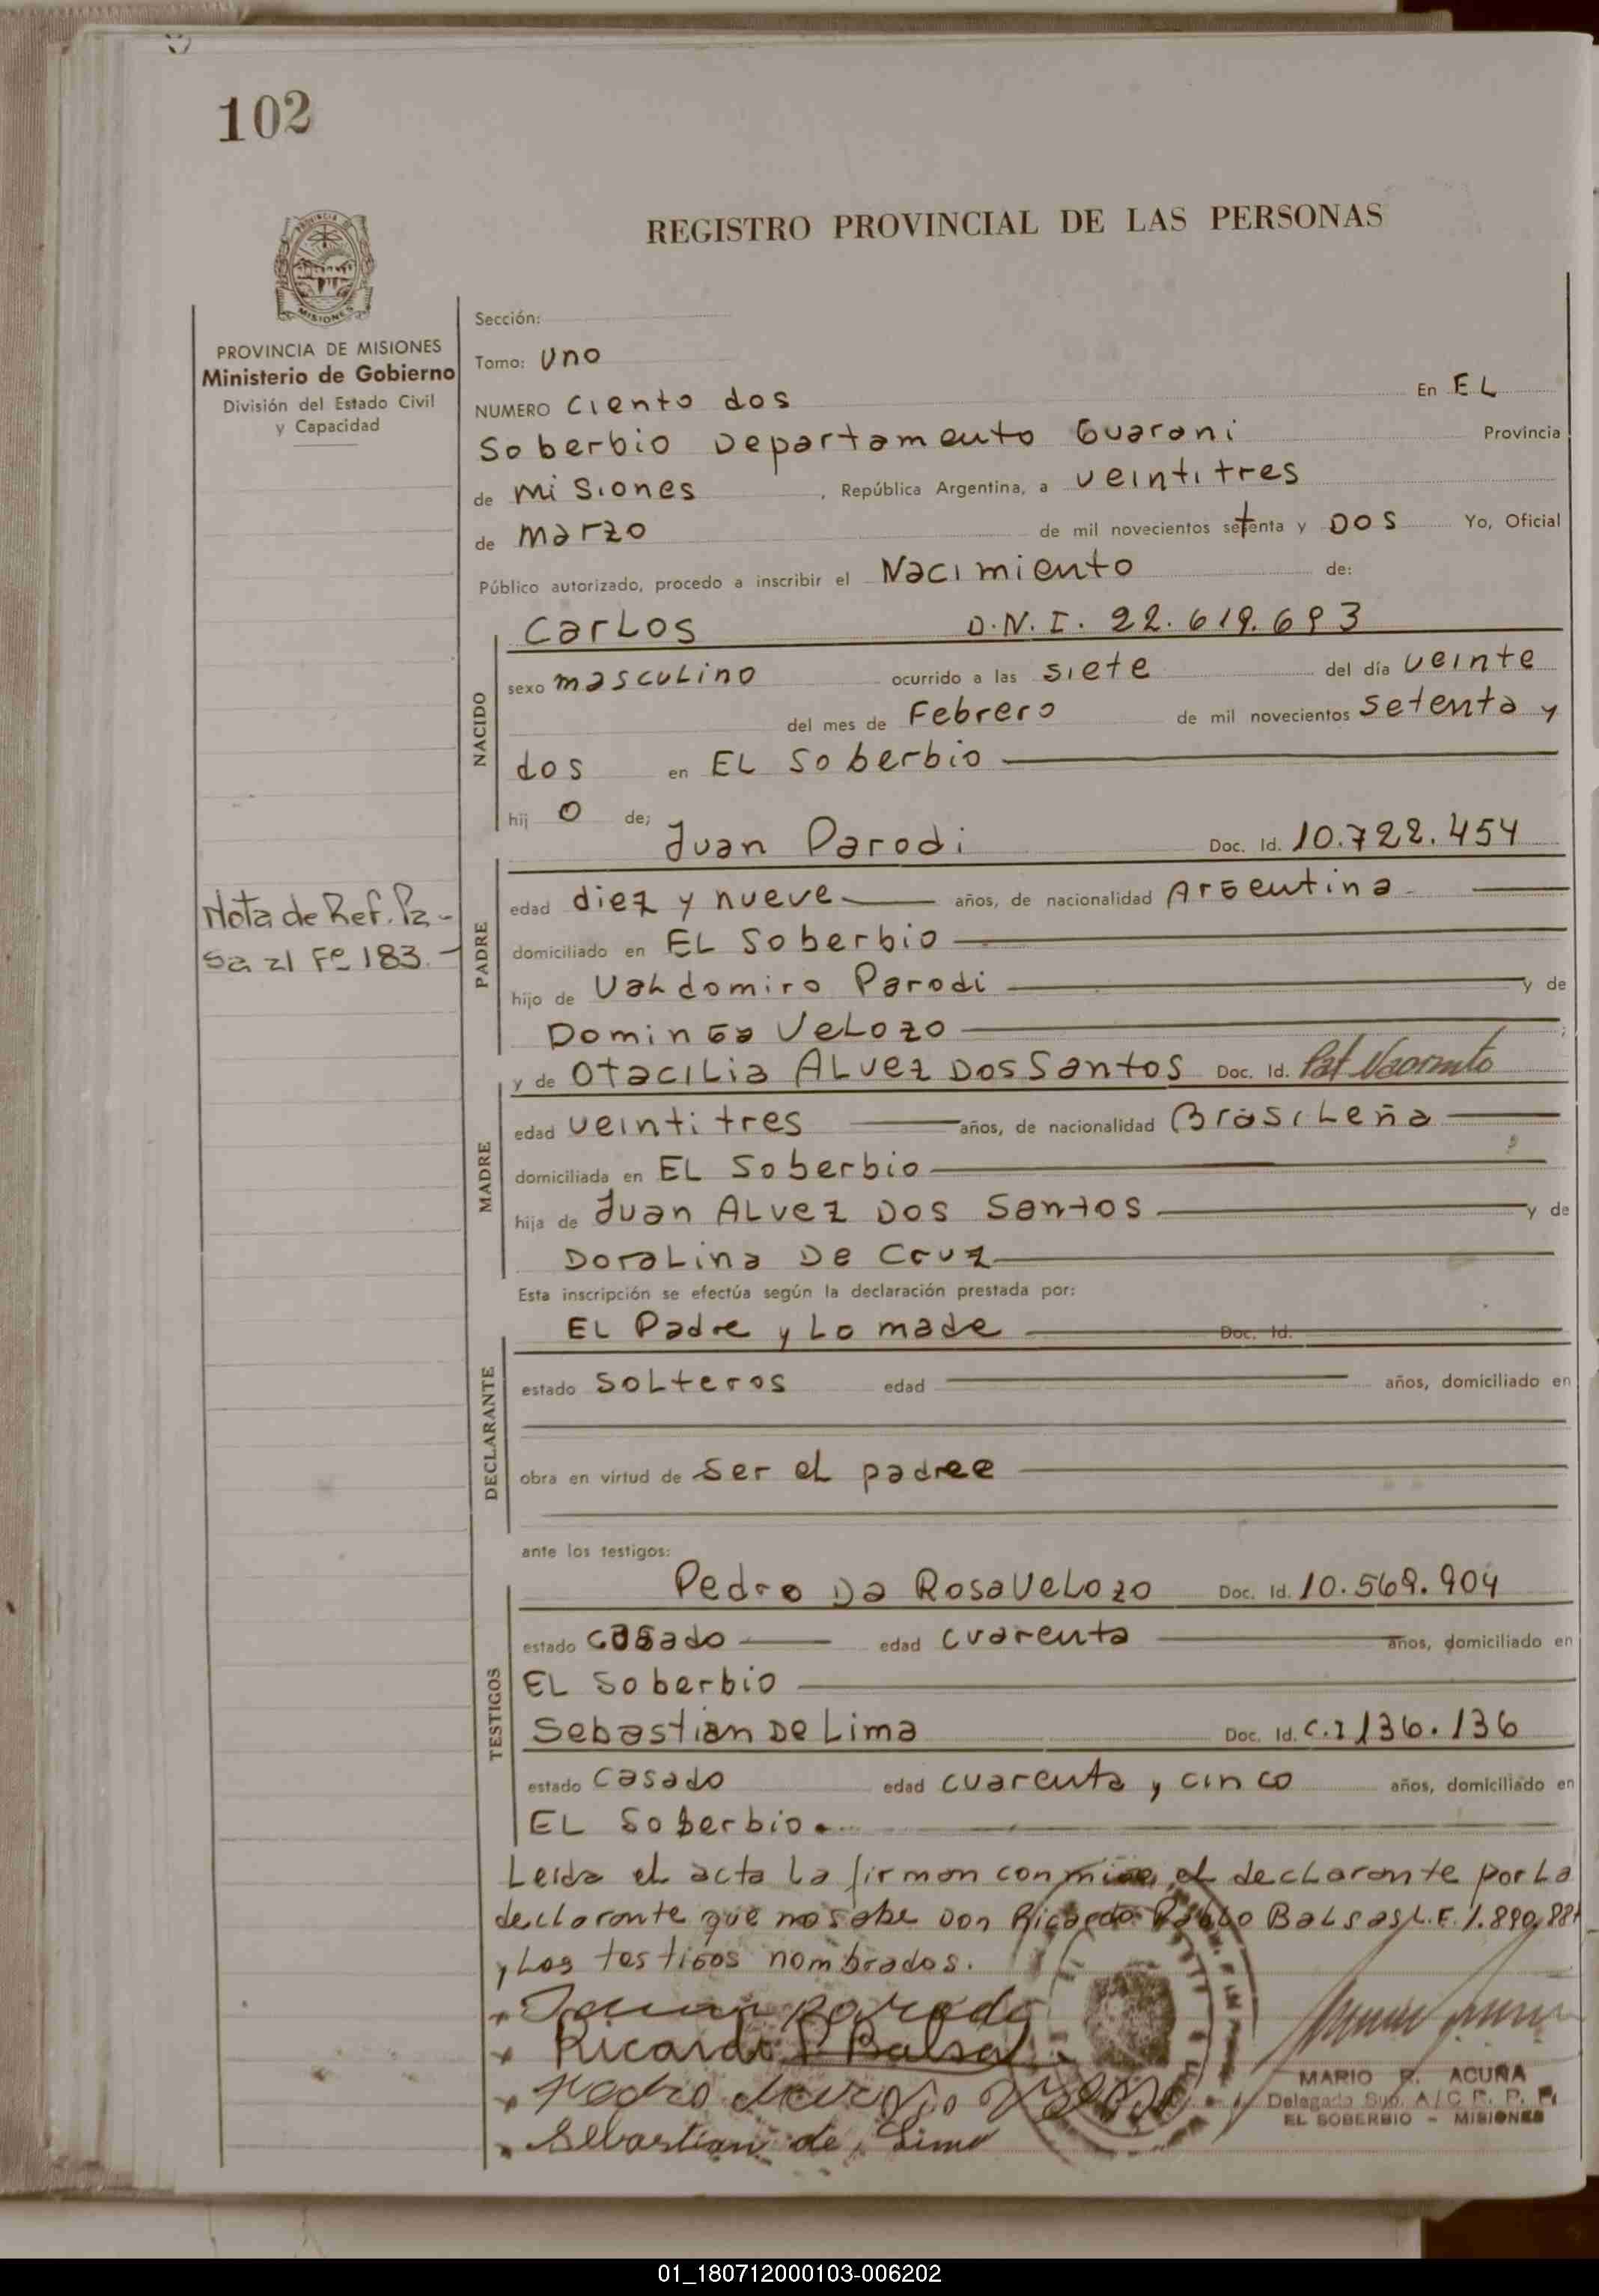 102
REGISTRO PROVINCIAL DE LAS PERSONAS
MISIONES
PROVINCIA DE MISIONES
Ministerio de Gobierno
División del Estado Civil
y Capacidad
Sección:
Tomo: uno
NUMERO ciento dos En EL
Soberbio Departamento Guarani Provincia
de Misiones, República Argentina, a veintitres
de marzo de mil novecientos setenta y DOS Yo, Oficial
Público autorizado, procedo a inscribir el Nacimiento de:
NACIDO
Carlos D.N.I. 22.619.693
sexo masculino ocurrido a las siete del día veinte
del mes de Febrero de mil novecientos setenta y
dos en EL Soberbio
hij o de;
PADRE
Juan Parodi Doc. Id. 10.722.454
edad diez y nueve años, de nacionalidad Argentina
Nota de Ref. Pa-
sa al Fº 183.-
domiciliado en EL Soberbio
hijo de Valdomiro Parodi y de
Dominga Velozo ;
MADRE
y de Otacilia Alvez Dos Santos Doc. Id.
edad veintitres años, de nacionalidad Brasileña
domiciliada en EL Soberbio
hija de Juan Alvez Dos Santos y de
Doralina De Cruz
Esta inscripción se efectúa según la declaración prestada por:
DECLARANTE
EL Padre y La made Doc. Id.
estado solteros edad años, domiciliado en
obra en virtud de ser el padree
ante los testigos:
TESTIGOS
Pedro Da Rosa Velozo Doc. Id. 10.569.904
estado casado edad cuarenta años, domiciliado en
EL Soberbio
Sebastian De Lima Doc. Id. C.I 136.136
estado casado edad cuarenta y cinco años, domiciliado en
EL Soberbio.
Leida el acta la firman conmigo, el declarante por la
declarante que no sabe Don Ricardo Pablo Balsas L.E. 1.890.881
y los testigos nombrados.
Juan parodi
Ricardo P. Balsa
Pedro
Sebastian de Lima
MARIO R. ACUÑA
Delegado Sup. A/C R. P. P.
EL SOBERBIO - MISIONES
01_180712000103-006202